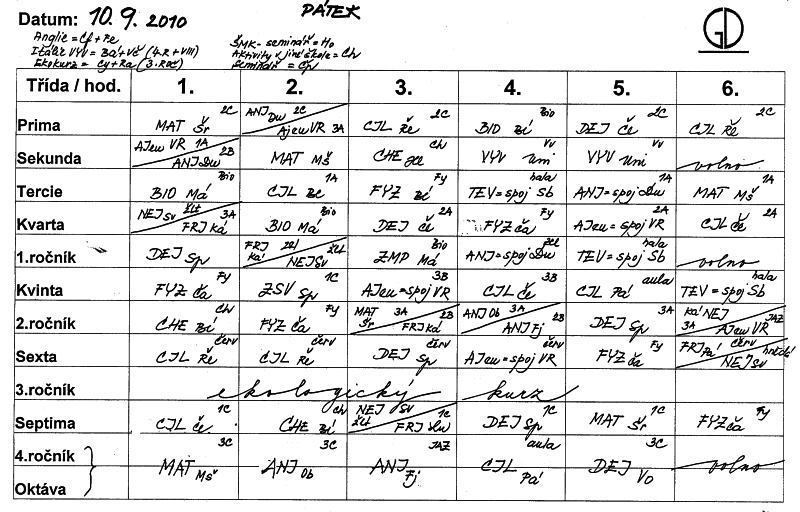 Datum: 10.9.2010 PÁTEK
Anglie = Cf + Pe
Itálie VYV = Bá + Vč (4.R + VIII)
Ekokurz = Cy + Ra (3. Roč)
ŠMK - seminář = Ho
Aktivity v jiné škole = Ch
Seminář = Čp
GD
Třída / hod. 1. 2. 3. 4. 5. 6.
Prima MAT Šr 2C ANJ Dw 2C AjewVR 3A CJL Ře 2C BIO Bí Bio DEJ Če 2C CJL Ře 2C
Sekunda AJew VR 1A ANJ Dw 2B MAT Mš CHE Ch VYV Uni Vv VYV Uni Vv volno
Tercie BIO Má Bio CJL Bc 1A FYZ Bí Fy TEV=spoj Sb hala ANJ=spoj Dw 1A MAT Mš 1A
Kvarta NEJ Sv žlt FRJ Ká 3A BIO Má Bio DEJ Če 2A FYZ Ča Fy AJew=spoj VR 2A CJL Če 2A
1.ročník DEJ Sp FRJ Ká zel NEJ Sv žlt ZMP Má Bio ANJ=spoj Dw zel TEV=spoj Sb hala volno
Kvinta FYZ Ča Fy ZSV Sp 1C AJew=spoj VR 3B CJL Če 3B CJL Pá aula TEV=spoj Sb hala
2.ročník CHE Bí Ch FYZ Ča Fy MAT Šr 3A FRJ Ká 2B ANJ Ob 3A ANJ Fj 2B DEJ Sp 3A Ká NEJ 3A AJew VR JAZ
Sexta CJL Ře červ CJL Ře červ DEJ Sp červ AJew=spoj VR červ FYZ Ča Fy FRJ Pá červ NEJ Sv
3.ročník ekologický kurz
Septima CJL Če 1C CHE Bí Ch NEJ Sv žlt FRJ 1C DEJ Sp 1C MAT Šr 1C FYZ Ča Fy
4.ročník
Oktáva MAT Mš 3C ANJ Ob 3C ANJ Fj JAZ CJL Pá aula DEJ Vo 3C volno